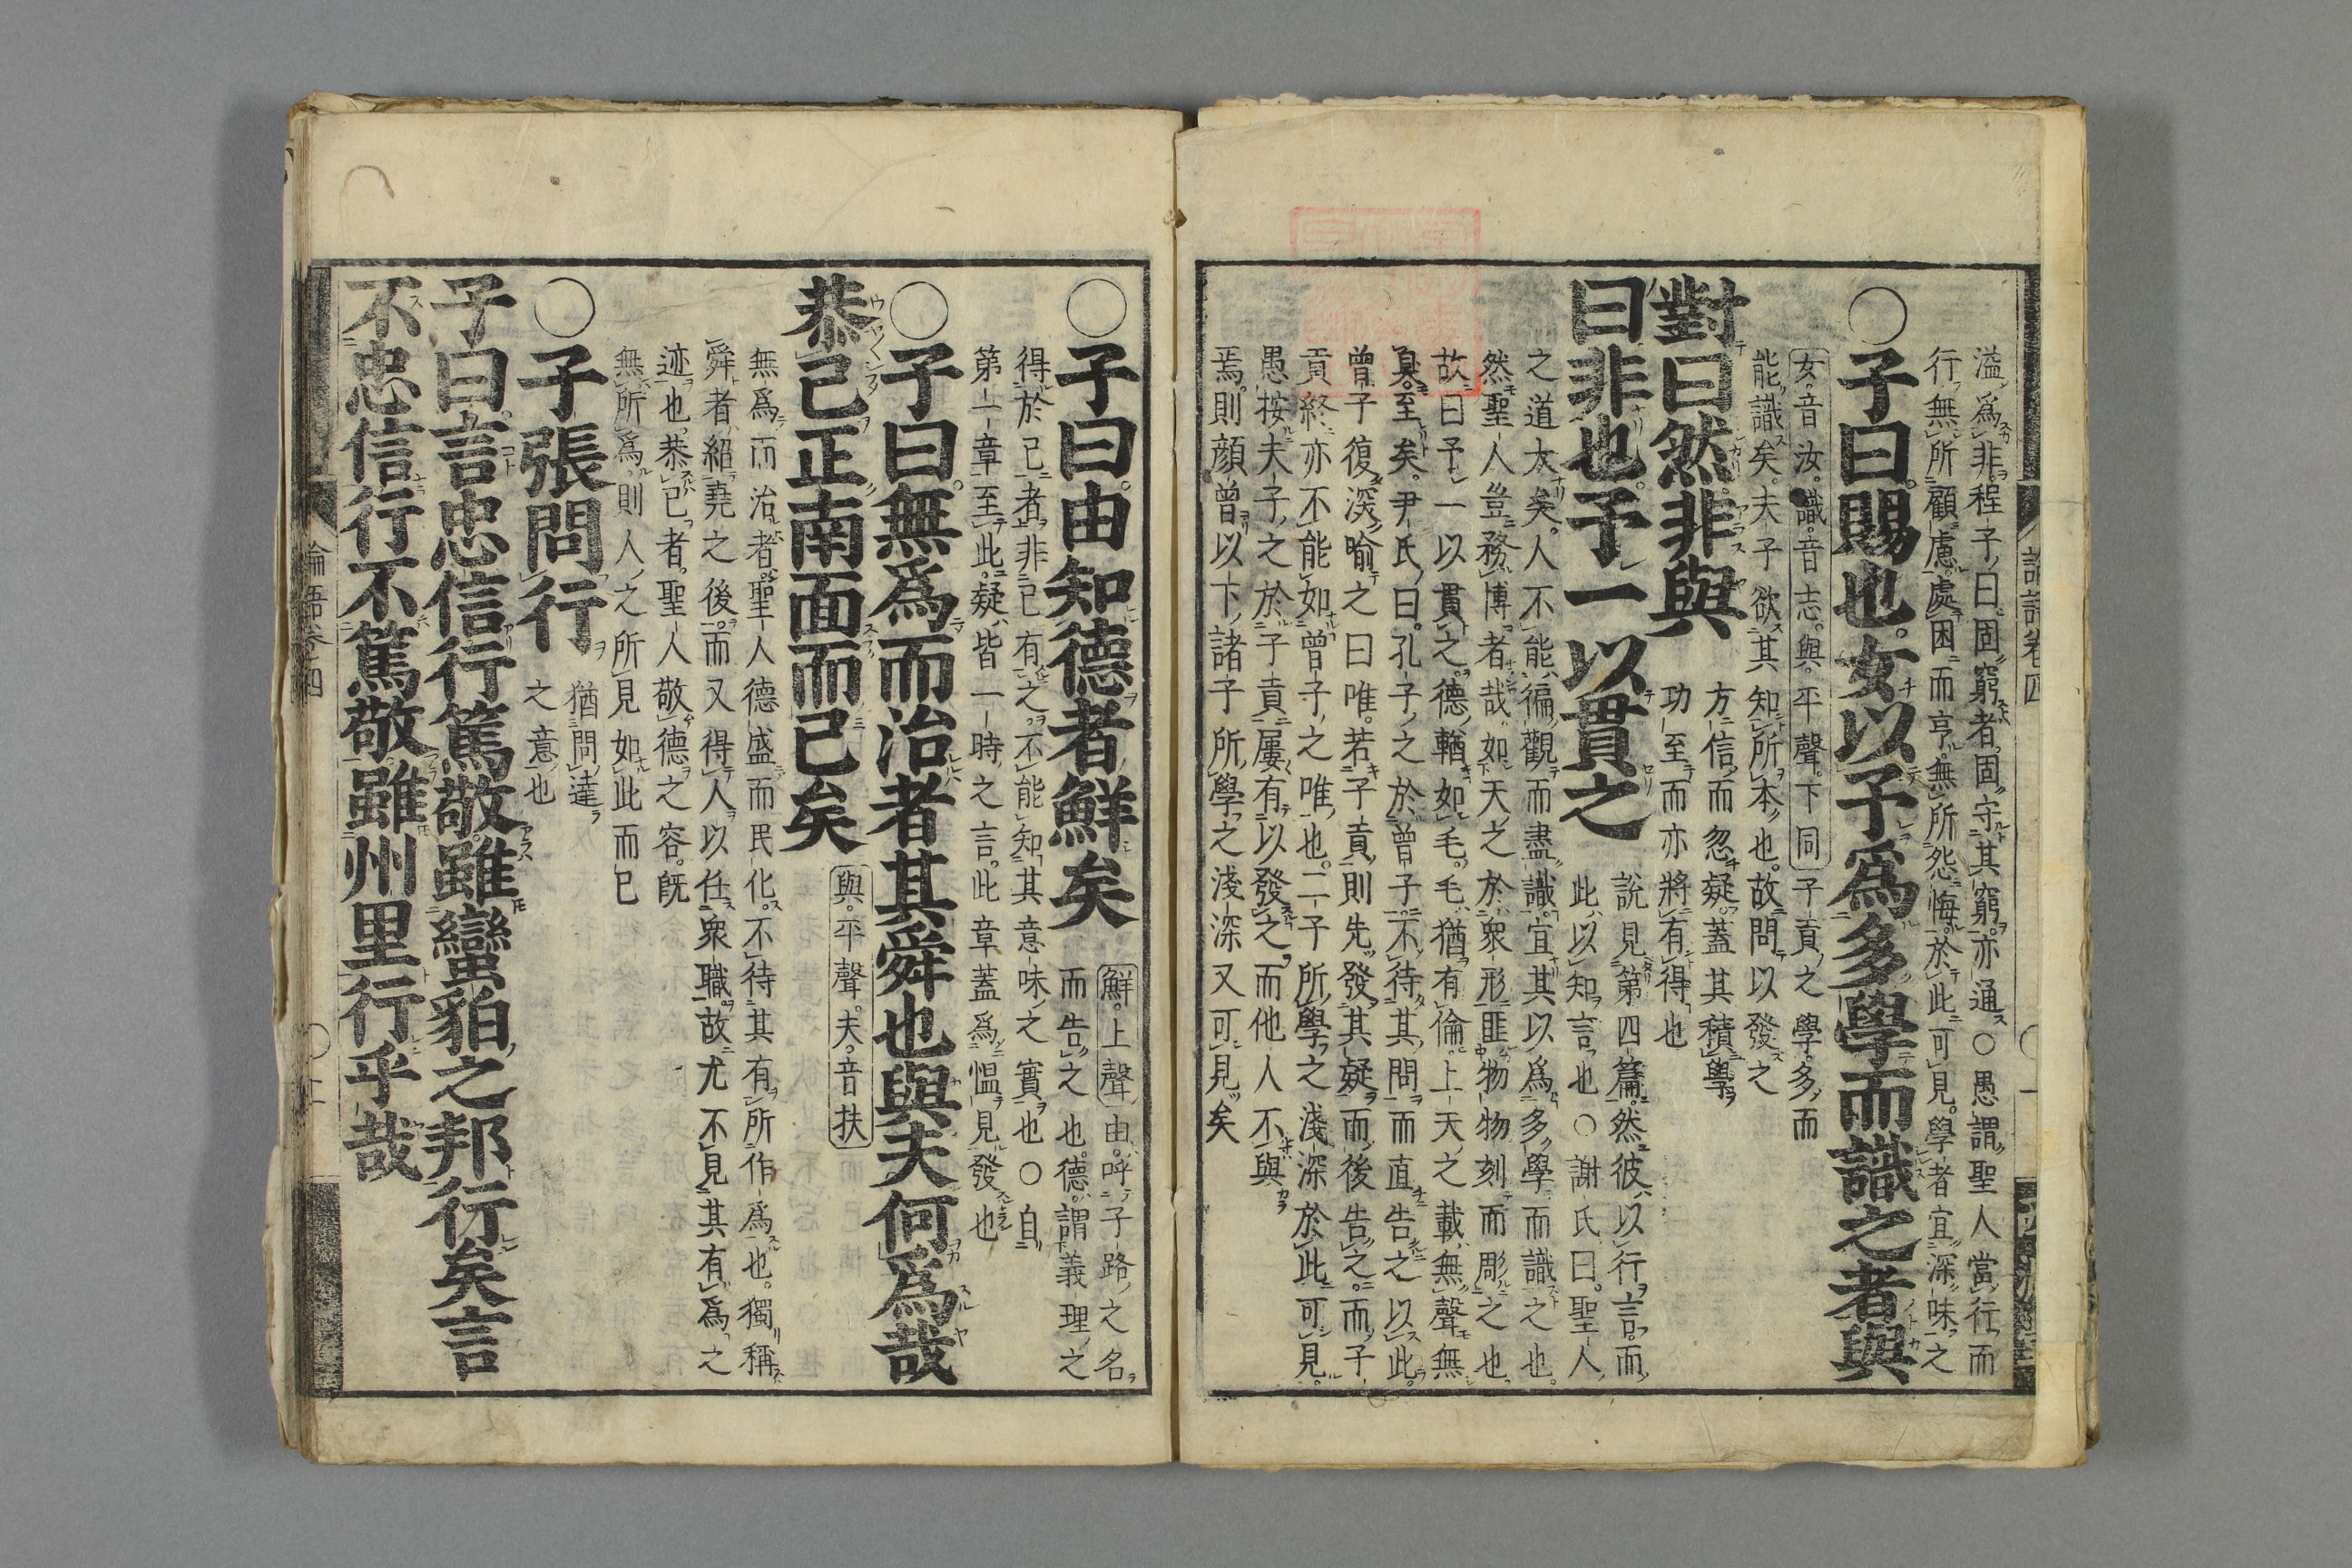 溢爲非程子曰固窮者固守其窮亦通○愚謂聖人當行而
行無所顧慮處困而亨無所怨悔於此可見學者宜深味之
○子曰賜也女以予爲多學而識之者與
女音汝識音志與平聲下同子貢之學多而
能識矣夫子欲其知所本也故問以發之
對曰然非與
方信而忽疑蓋其積學
功至而亦將有得也
曰非也予一以貫之
說見第四篇然彼以行言而
此以知言也○謝氏曰聖人
之道大矣人不能徧觀而盡識宜其以爲多學而識之也
然聖人豈務博者哉如天之於衆形匪物物刻而彫之也
故曰予一以貫之德輶如毛毛猶有倫上天之載無聲無
臭至矣尹氏曰孔子之於曾子不待其問而直告之以此
曾子復深喻之曰唯若子貢則先發其疑而後告之而子
貢終亦不能如曾子之唯也二子所學之淺深於此可見
愚按夫子之於子貢屢有以發之而他人不與
焉則顔曾以下諸子所學之淺深又可見矣
○子曰由知德者鮮矣
鮮上聲由呼子路之名
而告之也德謂義理之
得於己者非己有之不能知其意味之實也○自
第一章至此疑皆一時之言此章蓋爲慍見發也
○子曰無爲而治者其舜也與夫何爲哉
恭己正南面而已矣
與平聲夫音扶
無爲而治者聖人德盛而民化不待其有所作爲也獨稱
舜者紹堯之後而又得人以任衆職故尤不見其有爲之
迹也恭己者聖人敬德之容既
無所爲則人之所見如此而已
○子張問行
猶問達
之意也
子曰言忠信行篤敬雖蠻貊之邦行矣言
不忠信行不篤敬雖州里行乎哉
論語卷四